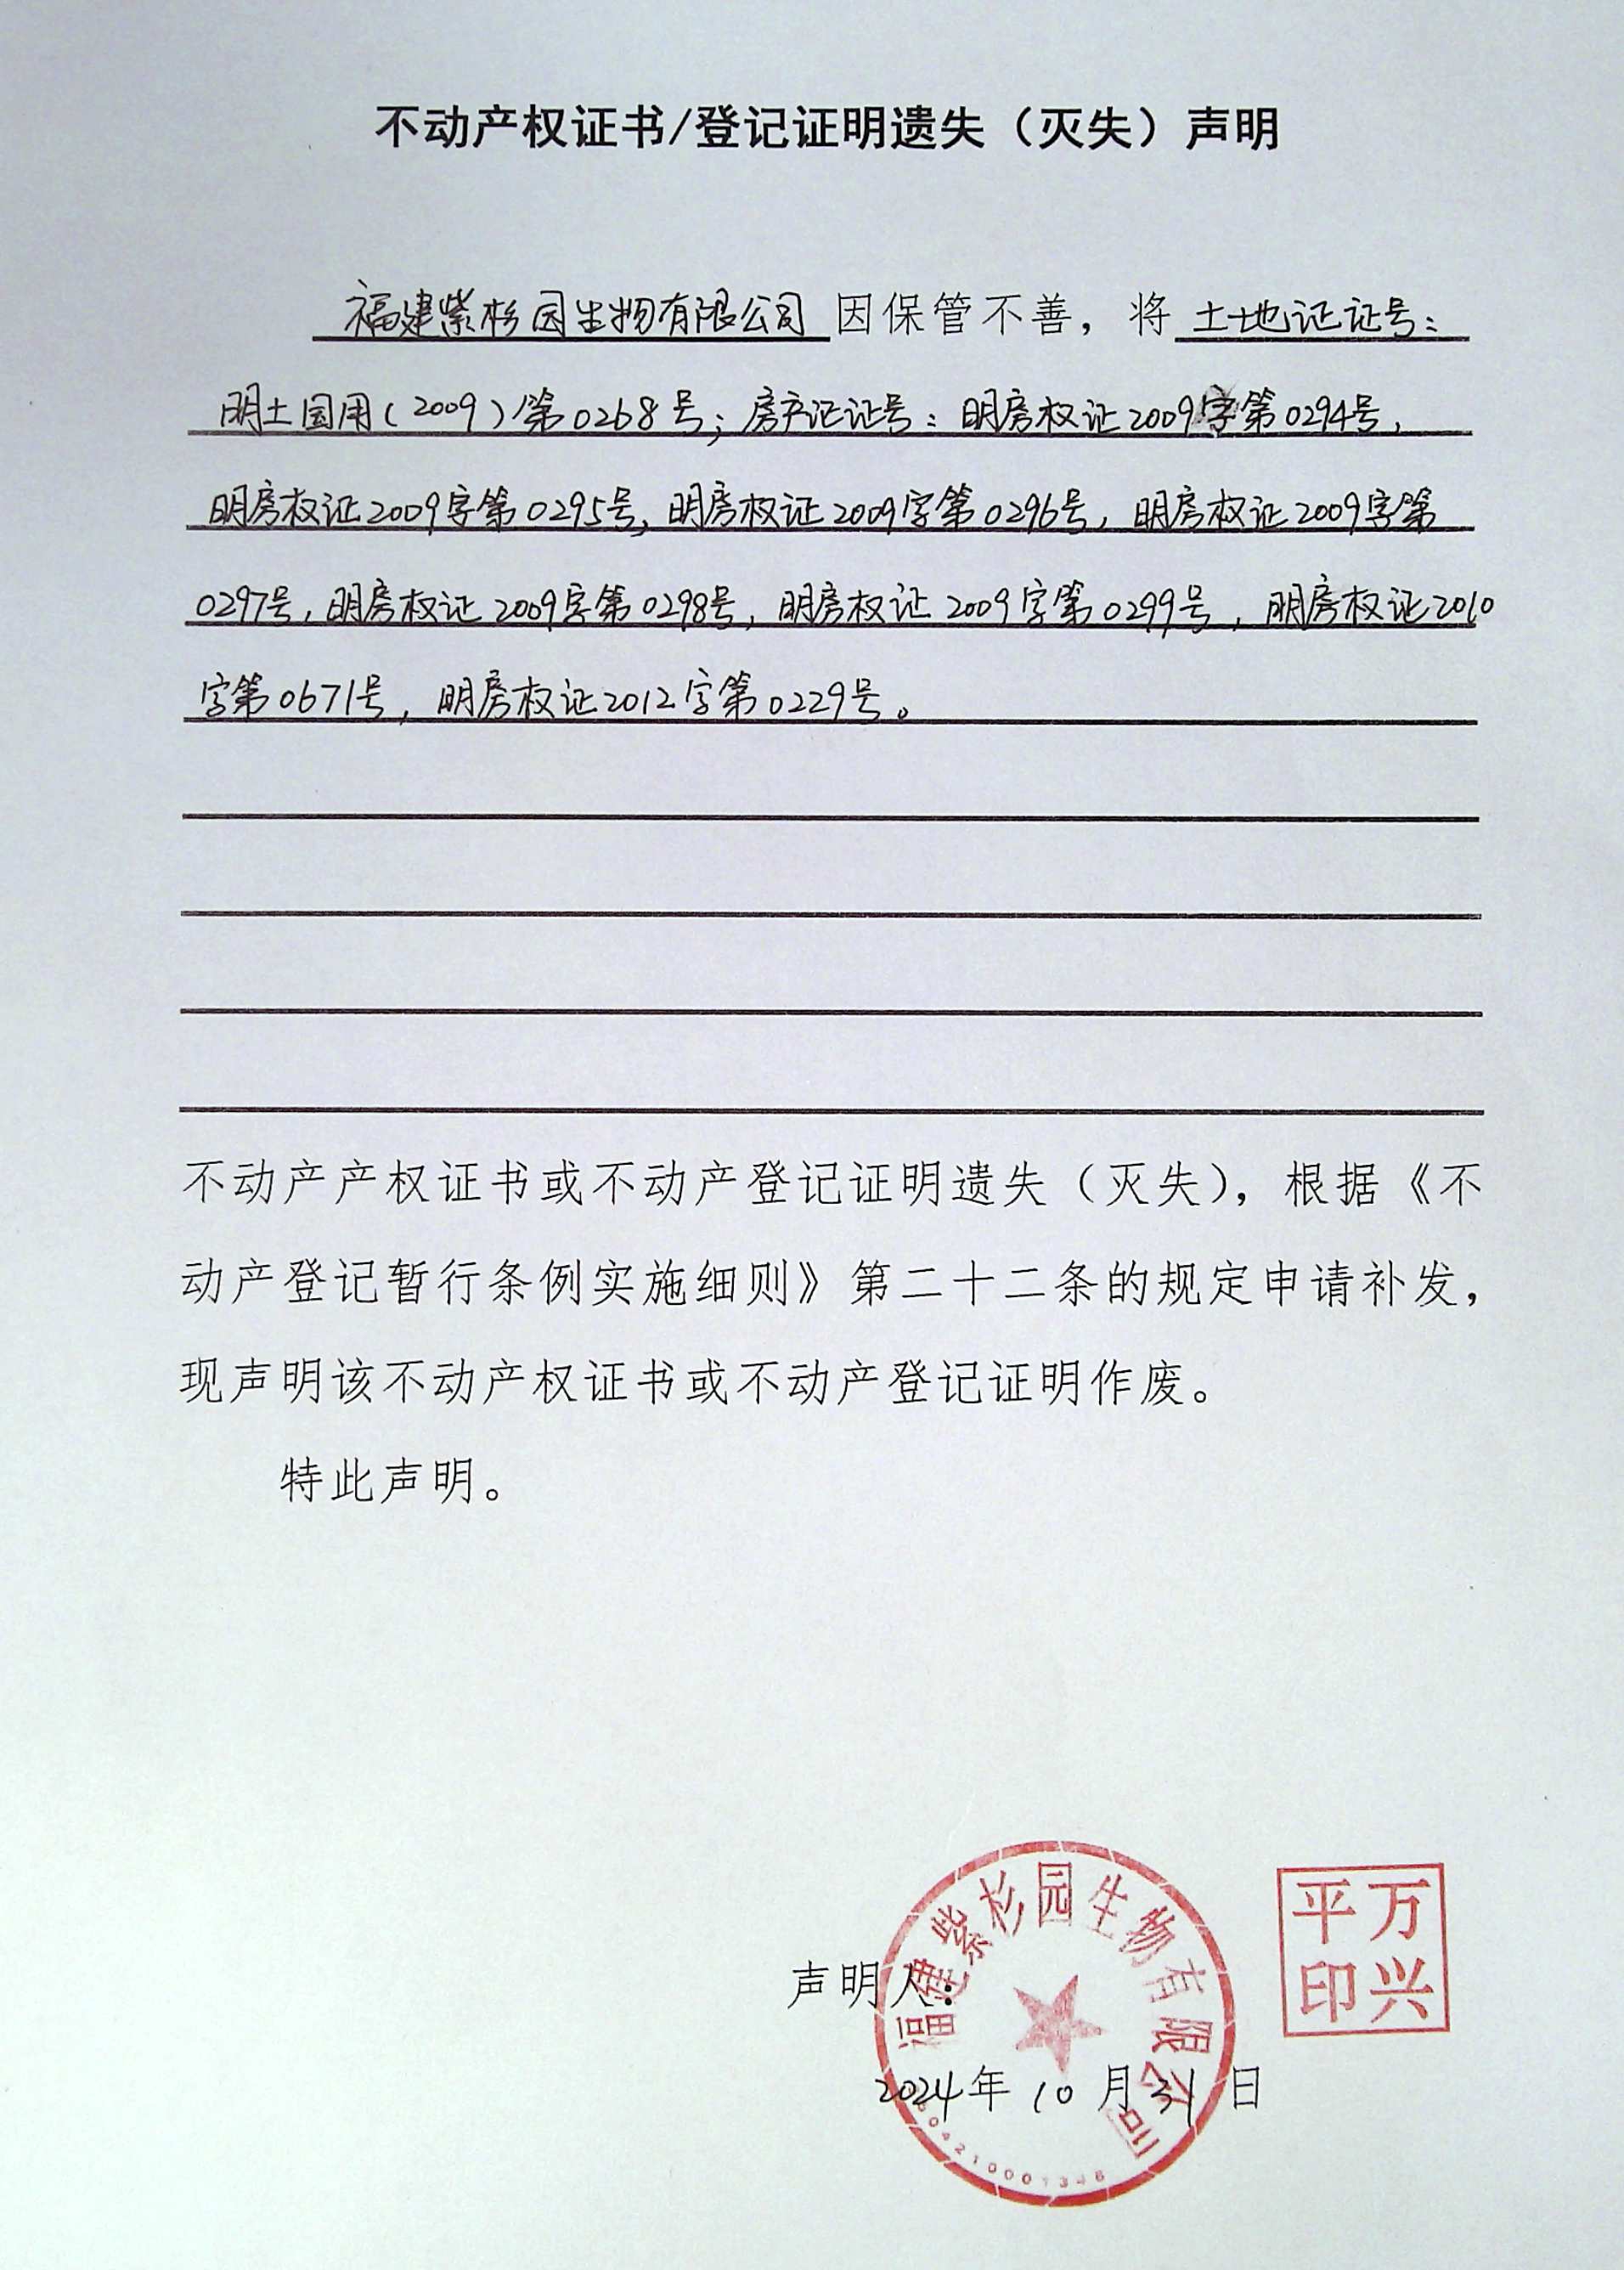 不动产权证书/登记证明遗失（灭失）声明
福建紫杉园生物有限公司因保管不善，将土地证证号：
明土国用（2009）第0268号；房产证证号：明房权证2009字第0294号，
明房权证2009字第0295号，明房权证2009字第0296号，明房权证2009字第
0297号，明房权证2009字第0298号，明房权证2009字第0299号，明房权证2010
字第0671号，明房权证2012字第0229号。
不动产产权证书或不动产登记证明遗失（灭失），根据《不
动产登记暂行条例实施细则》第二十二条的规定申请补发，
现声明该不动产权证书或不动产登记证明作废。
特此声明。
声明人：
福建紫杉园生物有限公司
万兴平印
2024年10月31日